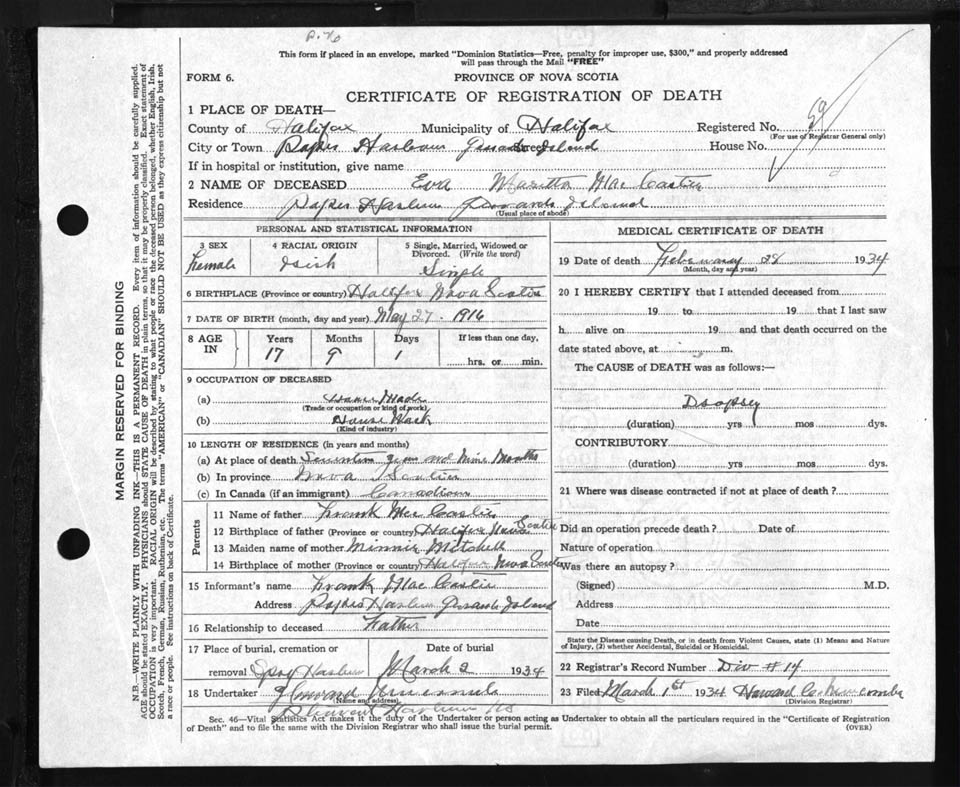 This form if placed in an envelope, marked "Dominion Statistics—Free, penalty for improper use, $300," and properly addressed
will pass through the Mail "FREE"
FORM 6.
PROVINCE OF NOVA SCOTIA
CERTIFICATE OF REGISTRATION OF DEATH
1 PLACE OF DEATH—
County of Halifax Municipality of Halifax Registered No. 59
(For use of Registrar General only)
City or Town Harbour Island House No.
If in hospital or institution, give name
2 NAME OF DECEASED Eva
Residence Island
(Usual place of abode)
PERSONAL AND STATISTICAL INFORMATION
3 SEX
Female
4 RACIAL ORIGIN
Irish
5 Single, Married, Widowed or Divorced. (Write the word)
Single
6 BIRTHPLACE (Province or country) Halifax Nova Scotia
7 DATE OF BIRTH (month, day and year) May 27 - 1916
8 AGE IN
Years Months Days If less than one day,
17 9 1 hrs. or min.
9 OCCUPATION OF DECEASED
(a)
(Trade or occupation or kind of work)
(b) House Work
(Kind of industry)
10 LENGTH OF RESIDENCE (in years and months)
(a) At place of death Seventeen years and Nine Months
(b) In province Nova Scotia
(c) In Canada (if an immigrant) Canadian
Parents
11 Name of father Frank
12 Birthplace of father (Province or country) Halifax Nova Scotia
13 Maiden name of mother Minnie Mitchell
14 Birthplace of mother (Province or country) Halifax Nova Scotia
15 Informant's name Frank
Address Island
16 Relationship to deceased Father
17 Place of burial, cremation or removal Spry Harbour
Date of burial
March 2 1934
18 Undertaker Howard
(Name and address)
Harbour NS
MEDICAL CERTIFICATE OF DEATH
19 Date of death February 28 1934
(Month, day and year)
20 I HEREBY CERTIFY that I attended deceased from
19 to 19 that I last saw
h alive on 19 and that death occurred on
date stated above, at m.
The CAUSE of DEATH was as follows:—
Dropsey
(duration) yrs mos dys.
CONTRIBUTORY
(duration) yrs mos dys.
21 Where was disease contracted if not at place of death?
Did an operation precede death? Date of
Nature of operation
Was there an autopsy?
(Signed) M.D.
Address
Date
State the Disease causing Death, or in death from Violent Causes, state (1) Means and Nature
of Injury, (2) whether Accidental, Suicidal or Homicidal.
22 Registrar's Record Number Div # 14
23 Filed March 1st 1934 Howard
(Division Registrar)
Sec. 46—Vital Statistics Act makes it the duty of the Undertaker or person acting as Undertaker to obtain all the particulars required in the "Certificate of Registration
of Death" and to file the same with the Division Registrar who shall issue the burial permit.
(OVER)
MARGIN RESERVED FOR BINDING
N.B.—WRITE PLAINLY WITH UNFADING INK—THIS IS A PERMANENT RECORD. Every item of information should be carefully supplied.
AGE should be stated EXACTLY. PHYSICIANS should STATE CAUSE OF DEATH in plain terms, so that it may be properly classified. Exact statement of
OCCUPATION is very important. RACIAL ORIGIN will be described by stating to what people or race the deceased person belonged, whether English, Irish,
Scotch, French, German, Russian, Ruthenian, etc. The terms "AMERICAN" or "CANADIAN" SHOULD NOT BE USED as they express citizenship but not
a race or people. See instructions on back of Certificate.